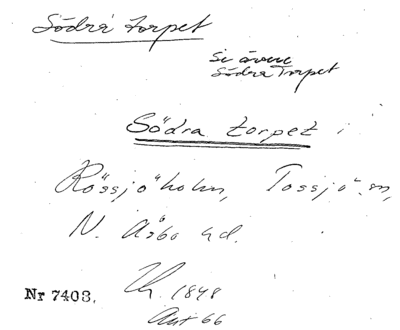 Södra torpet
Se även
Södra Torpet
Södra torpet i
Rössjöholm, Tossjö sn,
N. Åsbo hd.
1848
Nr 7403.
Avt 66